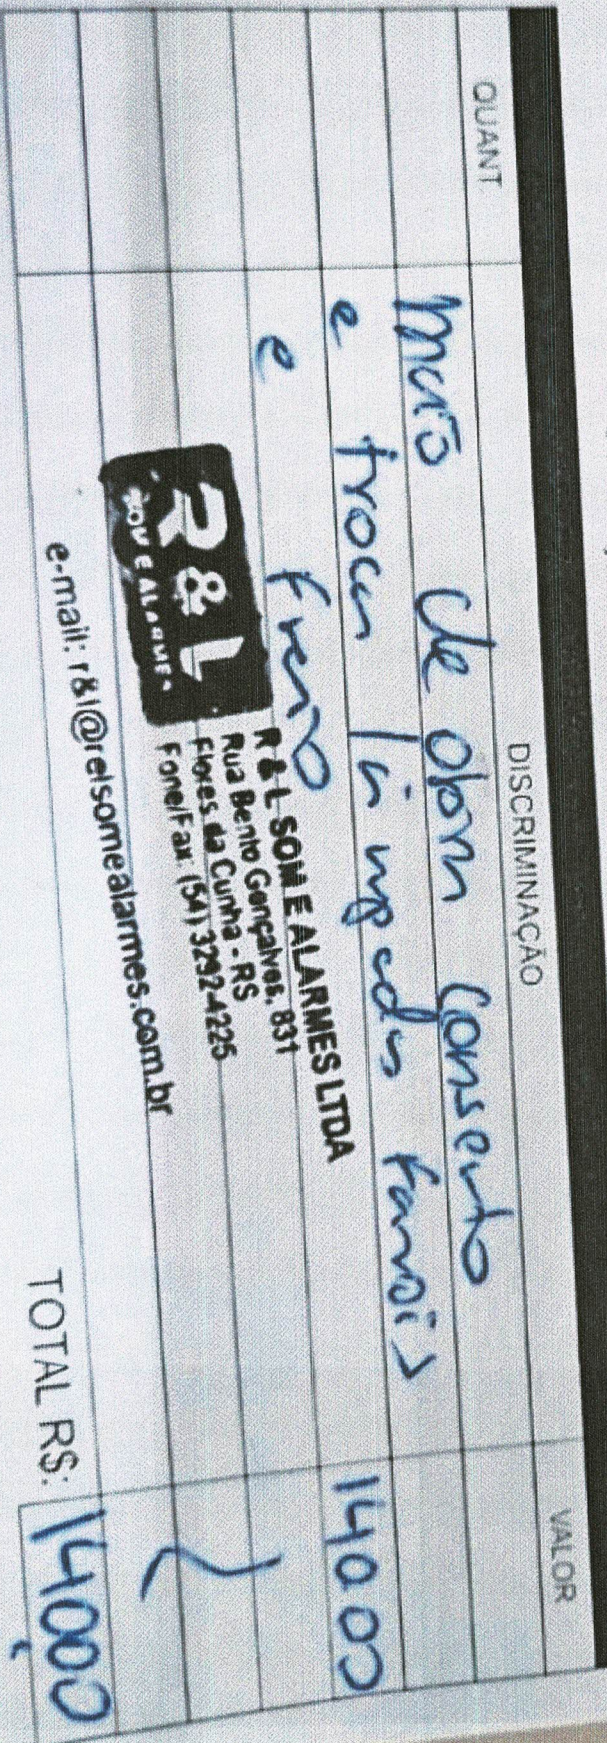 QUANT DISCRIMINAÇÃO VALOR
Mão de obra Conserto
e troca lâmpadas Faróis 140 00
e Freio
R & L
SOM E ALARMES
R & L SOM E ALARMES LTDA
Rua Bento Gonçalves, 831
Flores da Cunha - RS
Fone/Fax: (54) 3292-4225
e-mail: r&l@relsomealarmes.com.br
TOTAL R$: 140,00